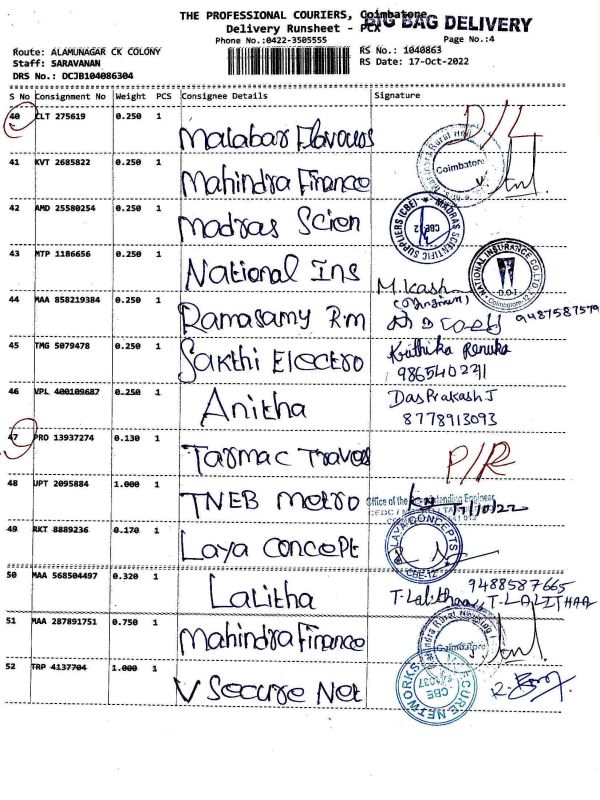 THE PROFESSIONAL COURIERS, Coimbatore
BIG BAG DELIVERY
Delivery Runsheet - PCX
Phone No.:0422-3505555
Page No.:4
Route: ALAMUNAGAR CK COLONY
RS No.: 1040863
Staff: SARAVANAN
RS Date: 17-Oct-2022
DRS No.: DCJB104086304
S No Consignment No Weight PCS Consignee Details Signature
40 CLT 275619 0.250 1 Malabar Flavours D/L
41 KVT 2685822 0.250 1 Mahindra Finance Coimbatore
42 AMD 25580254 0.250 1 Madras Scien MADRAS SCIENTIFIC SUPPLIERS (CBE) CBE-12
43 MTP 1186656 0.250 1 National Ins NATIONAL INSURANCE CO. LTD. D.O.I Coimbatore-12
M.Kash
44 MAA 858219384 0.250 1 Ramasamy R.m 9487587579
45 TMG 5079478 0.250 1 Sakthi Electro Kruthika Renuka
9865402291
46 VPL 400109687 0.250 1 Anitha Das Prakash J
8778913093
47 PRO 13937274 0.130 1 Tarmac Traves P/R
48 UPT 2095884 1.000 1 TNEB Metro Office of the Superintending Engineer
17/10/22
49 RKT 8889236 0.170 1 Laya Concept LAYA CONCEPTS CBE-12
50 MAA 568504497 0.320 1 Lalitha 9488587665
T. Lalithaa T-LALITHAA
51 MAA 287891751 0.750 1 Mahindra Finance Coimbatore
52 TRP 4137704 1.000 1 V Secure Net SECURE NETWORKS CBE 641037